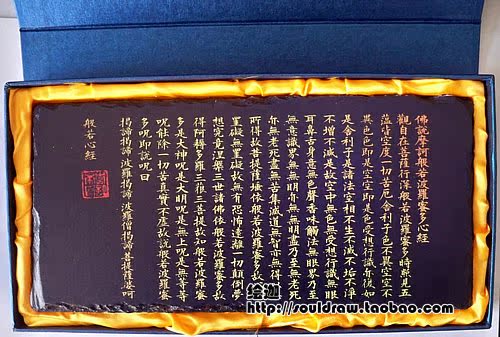 佛說摩訶般若波羅蜜多心經
觀自在菩薩行深般若波羅蜜多時照見五
蘊皆空度一切苦厄舍利子色不異空空不
異色色即是空空即是色受想行識亦復如
是舍利子是諸法空相不生不滅不垢不淨
不增不減是故空中無色無受想行識無眼
耳鼻舌身意無色聲香味觸法無眼界乃至
無意識界無無明亦無無明盡乃至無老死
亦無老死盡無苦集滅道無智亦無得以無
所得故菩提薩埵依般若波羅蜜多故心無
罣礙無罣礙故無有恐怖遠離一切顛倒夢
想究竟涅槃三世諸佛依般若波羅蜜多故
得阿耨多羅三藐三菩提故知般若波羅蜜
多是大神呪是大明呪是無上呪是無等等
呪能除一切苦真實不虛故說般若波羅蜜
多呪即說呪曰
揭諦揭諦波羅揭諦波羅僧揭諦菩提薩婆呵
般若心經
绘迦
http://souldraw.taobao.com